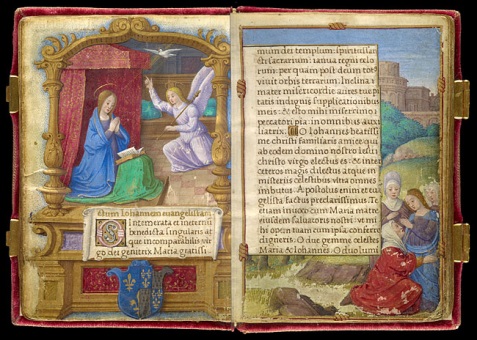 & divum Iohannem euangelistam
O Intemerata et ineternū
benedicta singularis at
que incomparabilis vir
go dei genitrix Maria gratissi
mum dei templum: spiritussan
cti sacrarium: ianua regni celo
rum: per quam post deum tot⁹
vivit orbis terrarum. Inclina
mater misericordie aures tue pi
etatis indignis supplicationibus
meis: & esto mihi miserrimo
peccatori pia: in omnibus auxi
liatrix. O Iohannes beatissi
me christi familiaris amice qui
ab eodem domino nostro Iesu
christo virgo electus es: & inter
ceteros magis dilectus atque in
misteriis celestibus vltra omnes
imbutus. Apostolus enim et eu
gelista factus preclarissimus: Te
etiam inuoco cum Maria matre
eiusdem saluatoris nostri: vt mi
hi opem tuam cum ipsa conferre
digneris. O due gemme celestes
Maria & Iohannes. O duo lumi